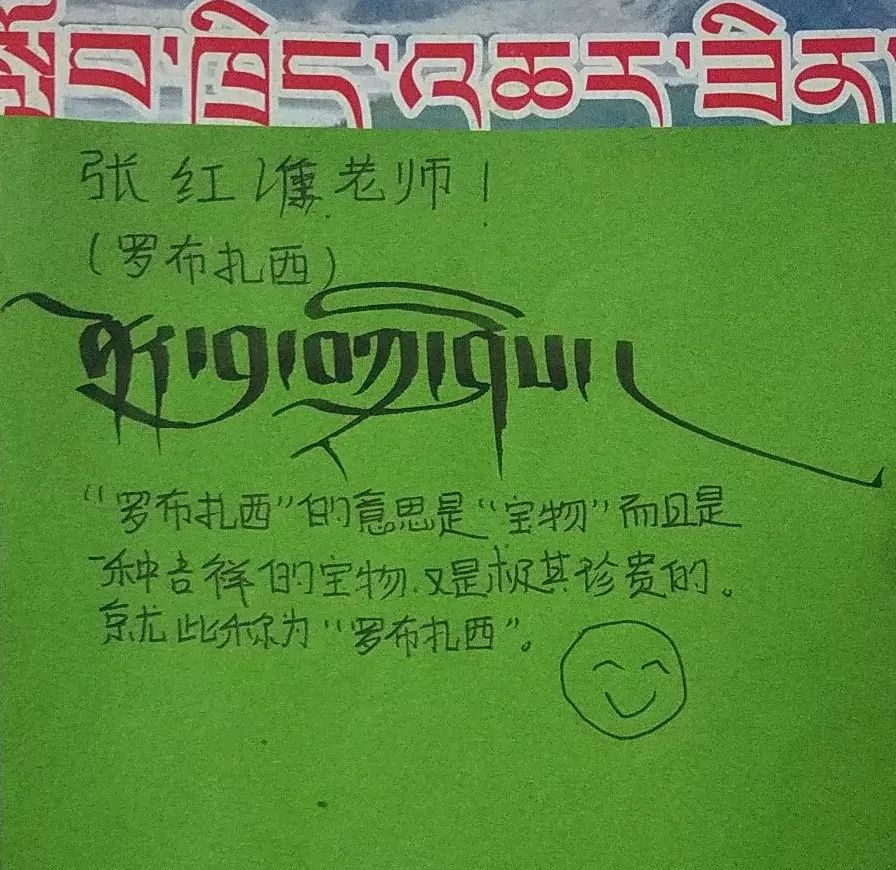 张红老师！
（罗布扎西）
ནོར་བུ་བཀྲ་ཤིས།
“罗布扎西”的意思是“宝物”而且是
一种吉祥的宝物、又是极其珍贵的。
就此称为“罗布扎西”。